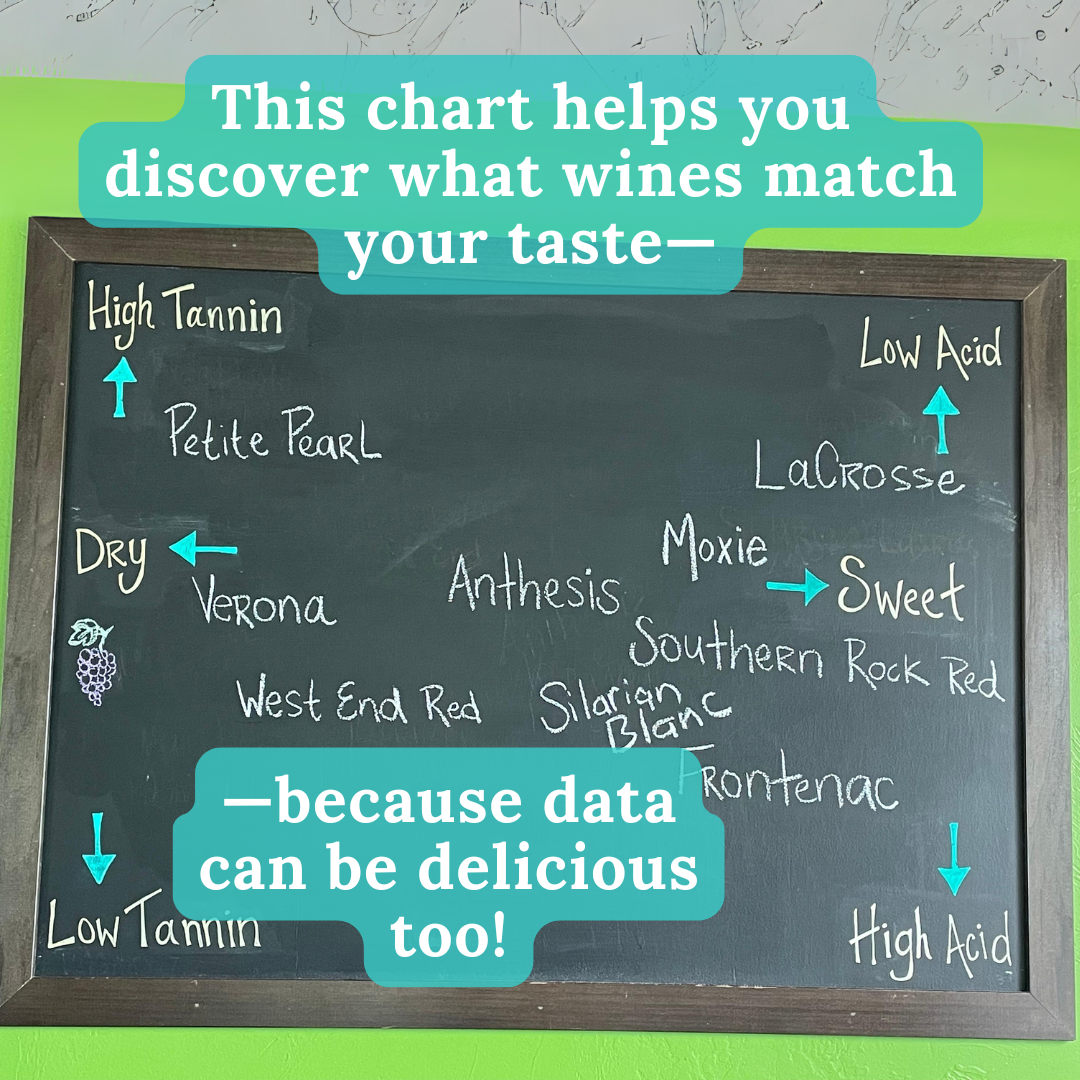 This chart helps you
discover what wines match
your taste—
High Tannin
Low Acid
Petite Pearl
LaCrosse
Moxie
Dry
Sweet
Anthesis
Verona
Southern Rock Red
West End Red
Silarian
Blanc
Frontenac
—because data
can be delicious
too!
Low Tannin
High Acid